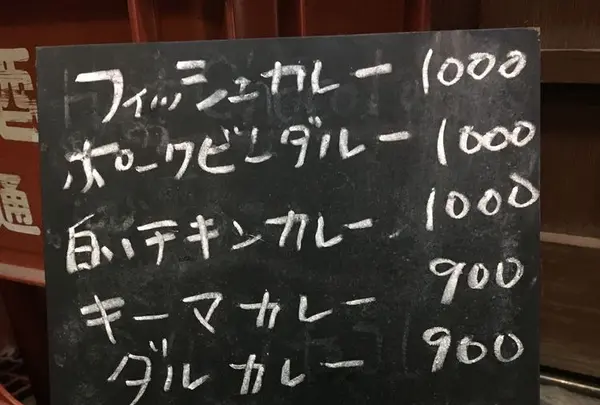 フィッシュカレー 1000
ポークビンダルー 1000
白いチキンカレー 1000
キーマカレー 900
ダルカレー 900
酒
通